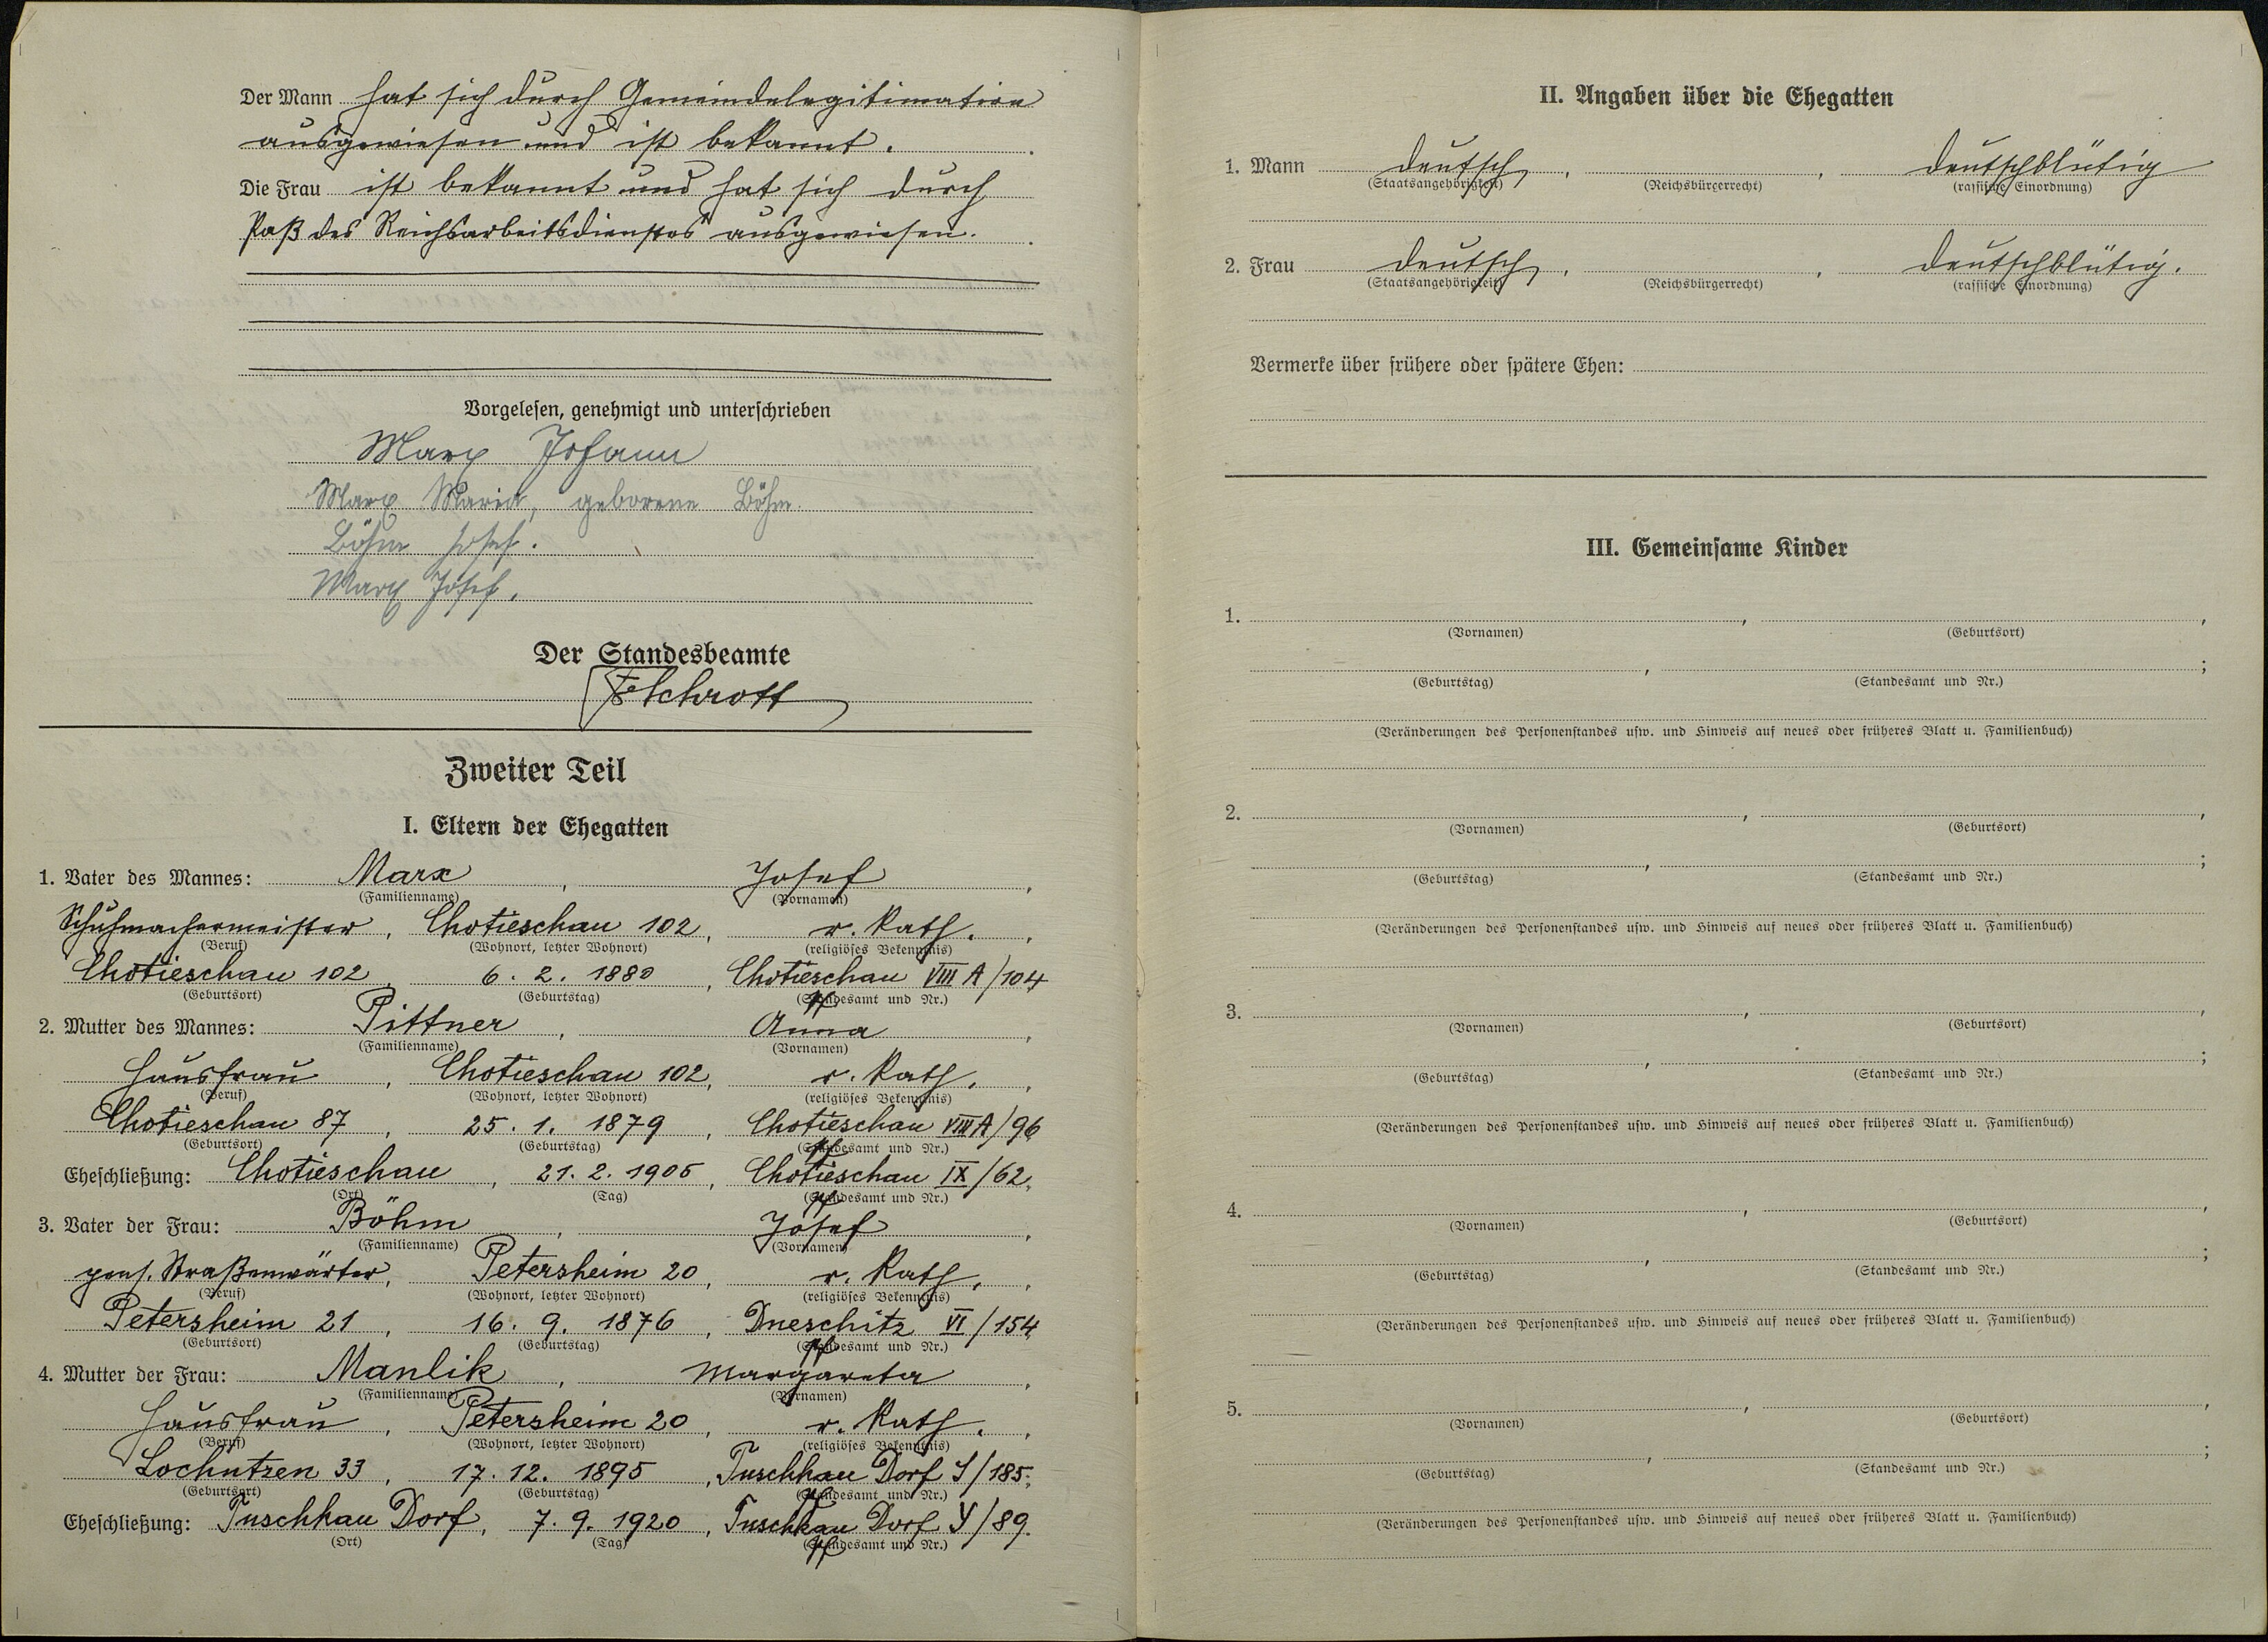 Der Mann hat sich durch Gemeindelegitimation
ausgewiesen und ist bekannt.
Die Frau ist bekannt und hat sich durch
Paß des Reichsarbeitsdienstes ausgewiesen.
Vorgelesen, genehmigt und unterschrieben
Marx Johann
Marx Maria, geborene Böhm.
Böhm Josef.
Marx Josef.
Der Standesbeamte
Schrott
Zweiter Teil
I. Eltern der Ehegatten
1. Vater des Mannes: Marx, Josef,
(Familienname) (Vornamen)
Schuhmachermeister, Chotieschau 102, r. kath.,
(Beruf) (Wohnort, letzter Wohnort) (religiöses Bekenntnis)
Chotieschau 102, 6. 2. 1880, Chotieschau VIII A/104
(Geburtsort) (Geburtstag) (Standesamt und Nr.)
2. Mutter des Mannes: Pittner, Anna,
(Familienname) (Vornamen)
Hausfrau, Chotieschau 102, r. kath.,
(Beruf) (Wohnort, letzter Wohnort) (religiöses Bekenntnis)
Chotieschau 87, 25. 1. 1879, Chotieschau VIII A/96
(Geburtsort) (Geburtstag) (Standesamt und Nr.)
Eheschließung: Chotieschau, 21. 2. 1905, Chotieschau IX/62.
(Ort) (Tag) (Standesamt und Nr.)
3. Vater der Frau: Böhm, Josef,
(Familienname) (Vornamen)
pens. Straßenwärter, Petersheim 20, r. kath.,
(Beruf) (Wohnort, letzter Wohnort) (religiöses Bekenntnis)
Petersheim 21, 16. 9. 1876, Dneschitz VI/154
(Geburtsort) (Geburtstag) (Standesamt und Nr.)
4. Mutter der Frau: Manlik, Margareta,
(Familienname) (Vornamen)
Hausfrau, Petersheim 20, r. kath.,
(Beruf) (Wohnort, letzter Wohnort) (religiöses Bekenntnis)
Lochutzen 33, 17. 12. 1895, Tuschkau Dorf /185;
(Geburtsort) (Geburtstag) (Standesamt und Nr.)
Eheschließung: Tuschkau Dorf, 7. 9. 1920, Tuschkau Dorf /89.
(Ort) (Tag) (Standesamt und Nr.)
II. Angaben über die Ehegatten
1. Mann deutsch, , deutschblütig
(Staatsangehörigkeit) (Reichsbürgerrecht) (rassische Einordnung)
2. Frau deutsch, , deutschblütig.
(Staatsangehörigkeit) (Reichsbürgerrecht) (rassische Einordnung)
Vermerke über frühere oder spätere Ehen:
III. Gemeinsame Kinder
1. , ,
(Vornamen) (Geburtsort)
, ;
(Geburtstag) (Standesamt und Nr.)
(Veränderungen des Personenstandes usw. und Hinweis auf neues oder früheres Blatt u. Familienbuch)
2. , ,
(Vornamen) (Geburtsort)
, ;
(Geburtstag) (Standesamt und Nr.)
(Veränderungen des Personenstandes usw. und Hinweis auf neues oder früheres Blatt u. Familienbuch)
3. , ,
(Vornamen) (Geburtsort)
, ;
(Geburtstag) (Standesamt und Nr.)
(Veränderungen des Personenstandes usw. und Hinweis auf neues oder früheres Blatt u. Familienbuch)
4. , ,
(Vornamen) (Geburtsort)
, ;
(Geburtstag) (Standesamt und Nr.)
(Veränderungen des Personenstandes usw. und Hinweis auf neues oder früheres Blatt u. Familienbuch)
5. , ,
(Vornamen) (Geburtsort)
, ;
(Geburtstag) (Standesamt und Nr.)
(Veränderungen des Personenstandes usw. und Hinweis auf neues oder früheres Blatt u. Familienbuch)